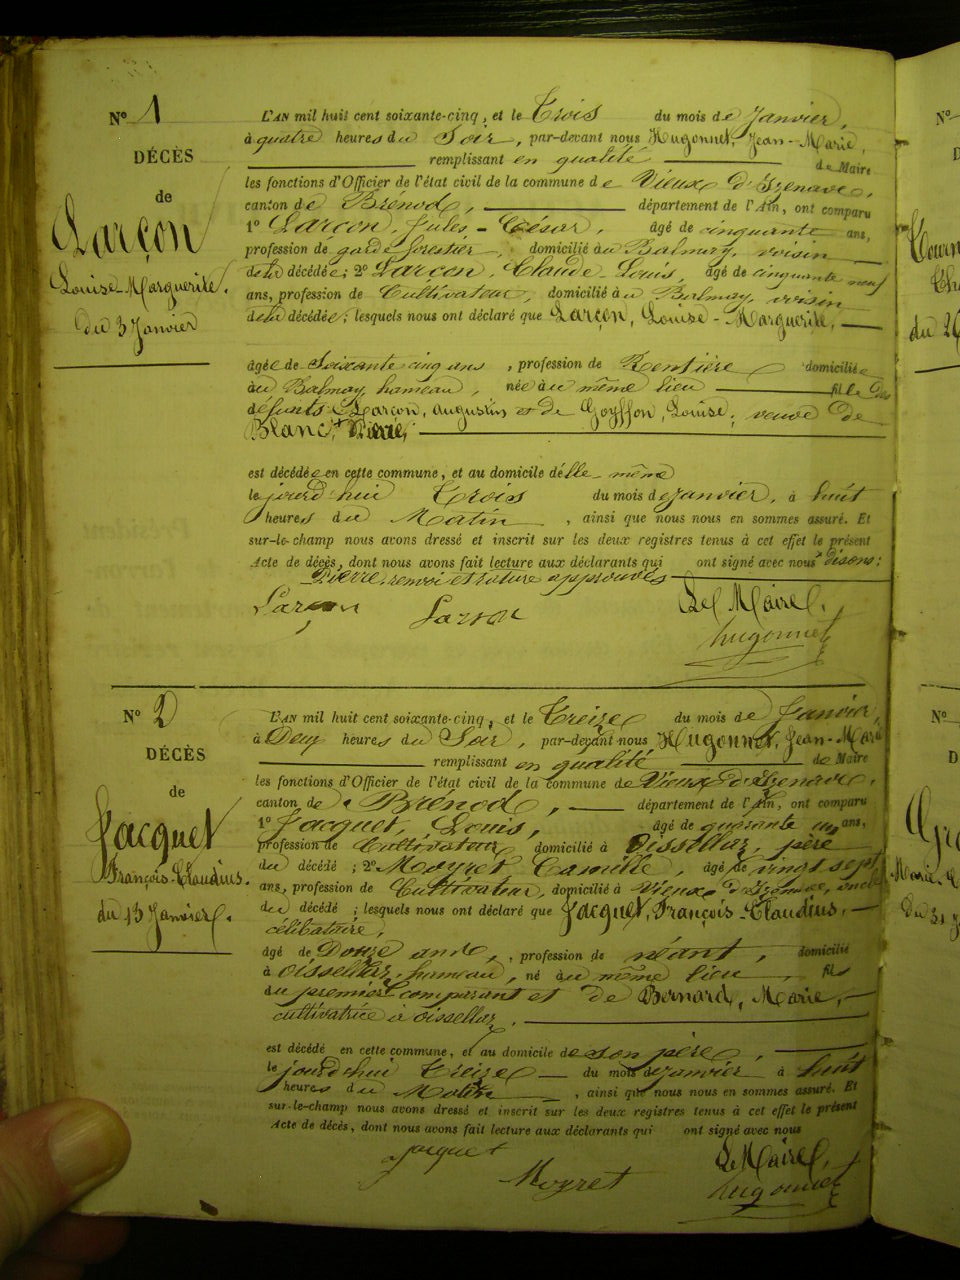 N° 1
DÉCÈS
de
Larçon
Louise-Marguerite.
du 3 Janvier
L'AN mil huit cent soixante-cinq, et le Trois du mois de Janvier,
à quatre heures du Soir, par-devant nous Hugonnet, Jean-Marie,
remplissant en qualité de Maire
les fonctions d'Officier de l'état civil de la commune de Vieux d'Izenave,
canton de Brénod, département de l'Ain, ont comparu
1° Larçon, Jules-César, âgé de cinquante ans,
profession de garde forestier, domicilié au Balmay, voisin
de la décédée; 2° Larçon, Claude-Louis, âgé de cinquante neuf
ans, profession de Cultivateur, domicilié au Balmay, voisin
de la décédée; lesquels nous ont déclaré que Larçon, Louise-Marguerite,
âgée de Soixante cinq ans, profession de Rentière domiciliée
au Balmay, hameau, née au même lieu fille des
défunts Larçon, Augustin et de Goyffon, Louise, veuve de
Blanc,
est décédée en cette commune, et au domicile d'elle-même
le jourd'hui Trois du mois de janvier, à huit
heures du Matin, ainsi que nous nous en sommes assuré. Et
sur-le-champ nous avons dressé et inscrit sur les deux registres tenus à cet effet le présent
Acte de décès, dont nous avons fait lecture aux déclarants qui ont signé avec nous disons:
Pierre, renvoi et rature approuvés
Larçon Larçon Le Maire,
hugonnet
N° 2
DÉCÈS
de
Jacquet
François-Claudius.
du 13 Janvier.
L'AN mil huit cent soixante-cinq, et le Treize du mois de Janvier,
à Deux heures du Soir, par-devant nous Hugonnet, Jean-Marie
remplissant en qualité de Maire
les fonctions d'Officier de l'état civil de la commune de Vieux d'Izenave,
canton de Brénod, département de l'Ain, ont comparu
1° Jacquet, Louis, âgé de quarante un ans,
profession de Cultivateur domicilié à Oissellaz, père
du décédé; 2° Moyret Camille, âgé de vingt sept
ans, profession de Cultivateur, domicilié à Vieux d'Izenave, oncle
du décédé; lesquels nous ont déclaré que Jacquet, François-Claudius,
célibataire,
âgé de Douze ans, profession de néant, domicilié
à Oissellaz, hameau, né au même lieu fils
du premier comparant et de Bernard, Marie,
cultivatrice à Oissellaz,
est décédé en cette commune, et au domicile de son père,
le jourd'hui Treize du mois de janvier à huit
heures du Matin, ainsi que nous nous en sommes assuré. Et
sur-le-champ nous avons dressé et inscrit sur les deux registres tenus à cet effet le présent
Acte de décès, dont nous avons fait lecture aux déclarants qui ont signé avec nous
Jacquet Moyret Le Maire,
hugonnet